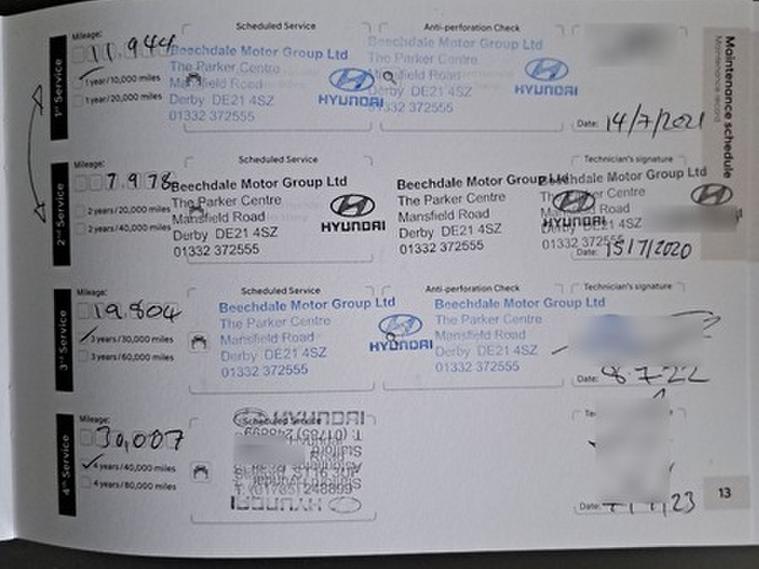 Maintenance schedule
Maintenance record
1st Service
Mileage:
11,944
1 year/10,000 miles
1 year/20,000 miles
Scheduled Service
Beechdale Motor Group Ltd
The Parker Centre
Mansfield Road
Derby DE21 4SZ
01332 372555
HYUNDAI
Anti-perforation Check
Beechdale Motor Group Ltd
The Parker Centre
Mansfield Road
Derby DE21 4SZ
01332 372555
HYUNDAI
Date: 14/7/2021
2nd Service
Mileage:
7,978
2 years/20,000 miles
2 years/40,000 miles
Scheduled Service
Beechdale Motor Group Ltd
The Parker Centre
Mansfield Road
Derby DE21 4SZ
01332 372555
HYUNDAI
Beechdale Motor Group Ltd
The Parker Centre
Mansfield Road
Derby DE21 4SZ
01332 372555
HYUNDAI
Technician's signature
Beechdale Motor Group Ltd
The Parker Centre
Mansfield Road
Derby DE21 4SZ
01332 372555
Date: 15/7/2020
3rd Service
Mileage:
19,804
3 years/30,000 miles
3 years/60,000 miles
Scheduled Service
Beechdale Motor Group Ltd
The Parker Centre
Mansfield Road
Derby DE21 4SZ
01332 372555
HYUNDAI
Anti-perforation Check
Beechdale Motor Group Ltd
The Parker Centre
Mansfield Road
Derby DE21 4SZ
01332 372555
Technician's signature
Date: 8-7-22
4th Service
Mileage:
30,007
4 years/40,000 miles
4 years/80,000 miles
Scheduled Service
HYUNDAI
Stafford
T: (01785) 248899
HYUNDAI
Date:
13